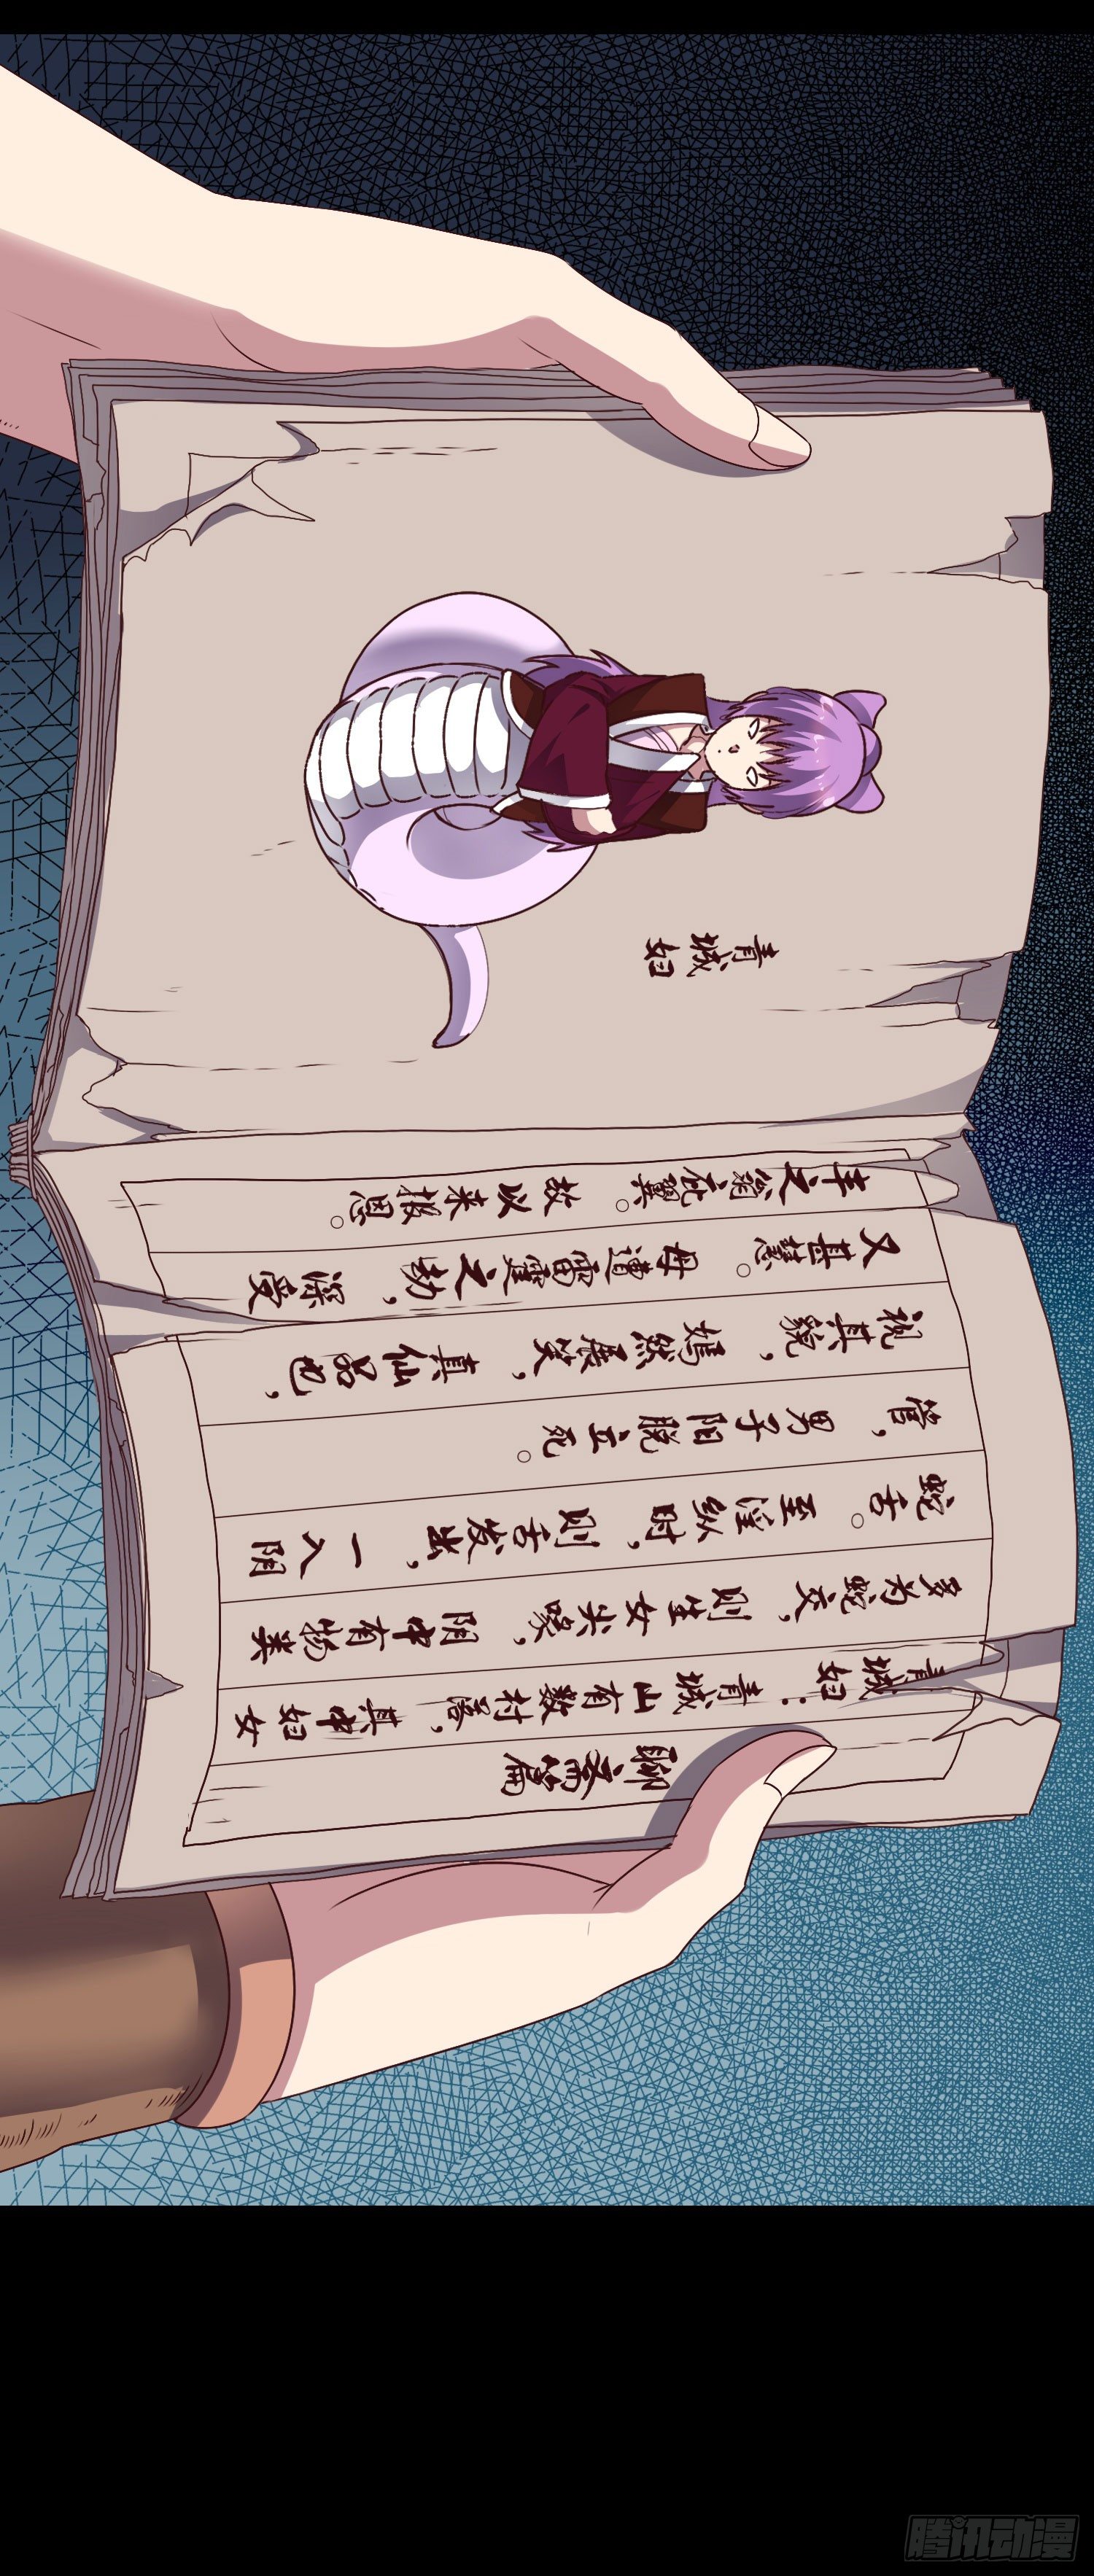 聊斋篇
青城妇：青城山有数村落，其中妇女
多为蛇交，则生女尖喙，阴中有物类
蛇舌。至淫纵时，则舌发出，一入阴
管，男子阳脱立死。
视其貌，嫣然展笑，真仙品也，
又甚慧。母遭雷霆之劫，深受
丰之翁庇翼。故以来报恩。
青城妇
腾讯动漫